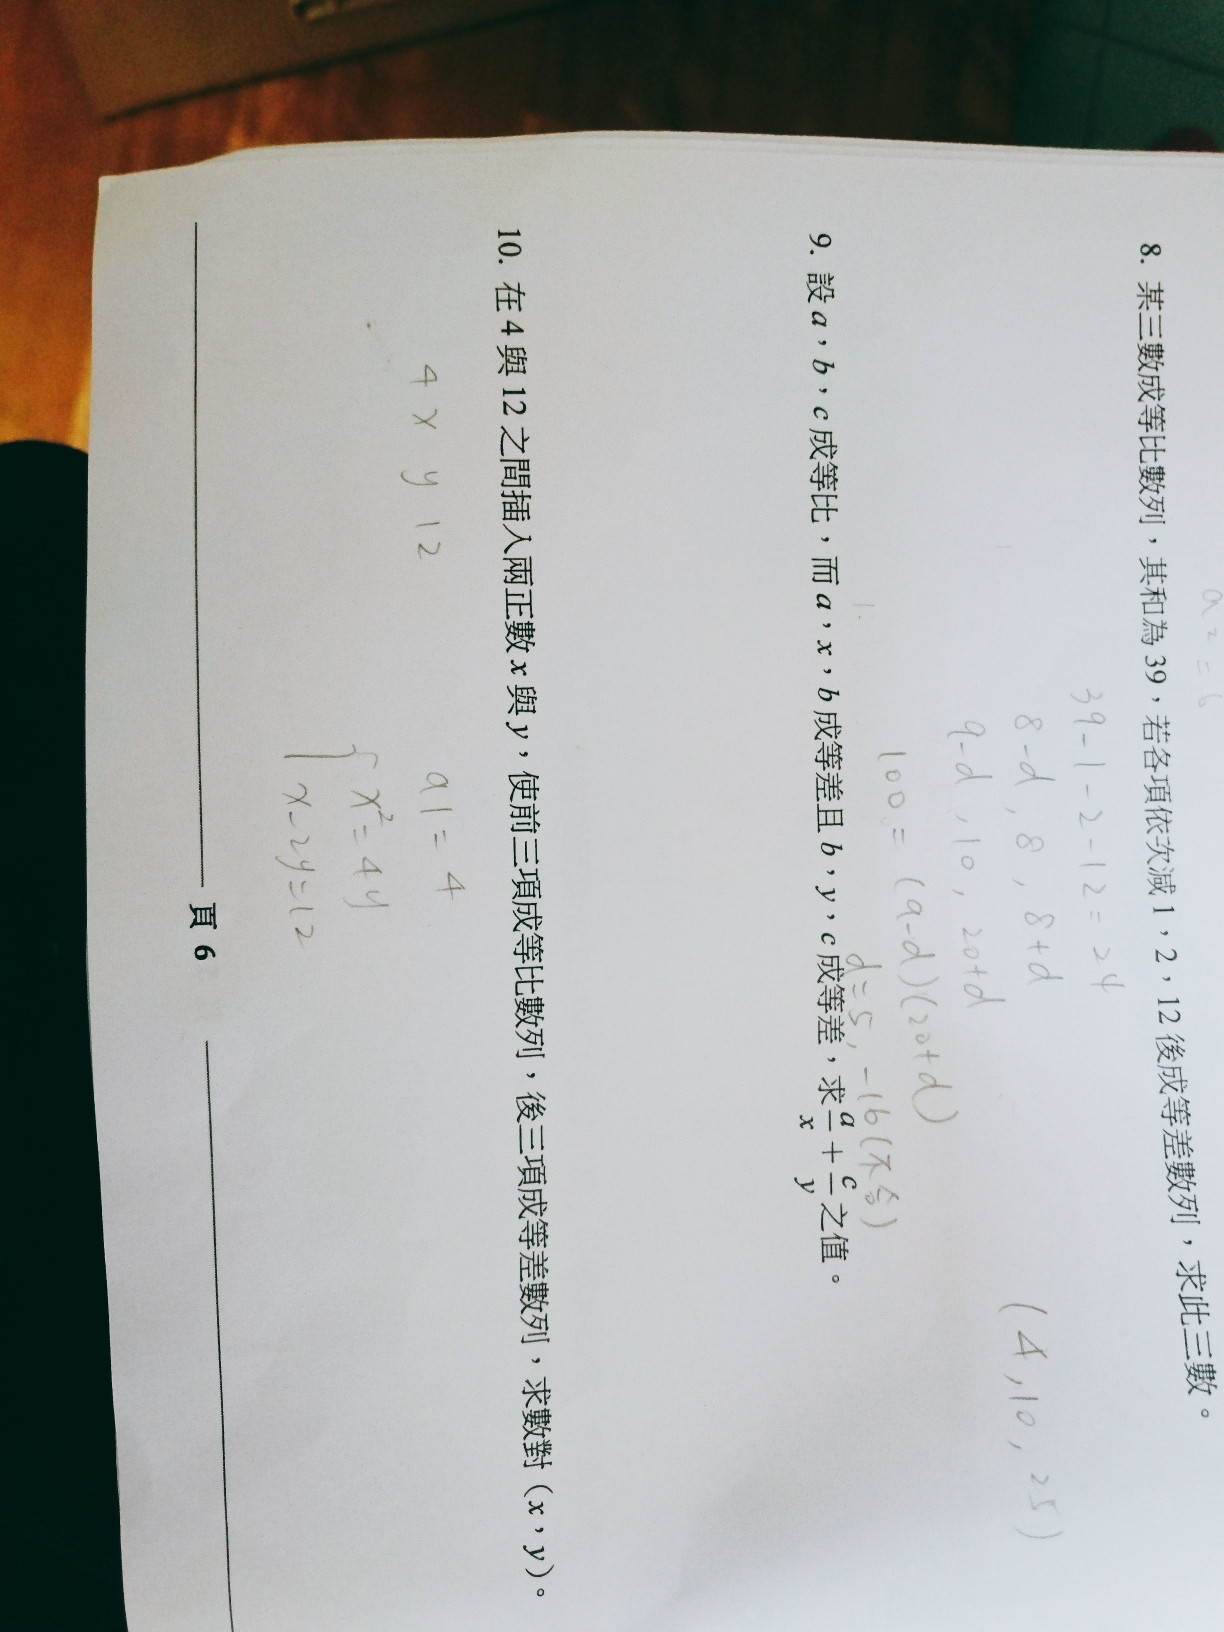 a2 = 6
8. 某三數成等比數列，其和為 39，若各項依次減 1，2，12 後成等差數列，求此三數。
39-1-2-12=24
8-d, 8, 8+d
9-d, 10, 20+d
(4, 10, 25)
100=(a-d)(20+d)
d=5, -16(不合)
9. 設 a，b，c 成等比，而 a，x，b 成等差且 b，y，c 成等差，求 a/x + c/y 之值。
10. 在 4 與 12 之間插入兩正數 x 與 y，使前三項成等比數列，後三項成等差數列，求數對 (x，y)。
4 x y 12
a1=4
x²=4y
x-2y=12
頁 6